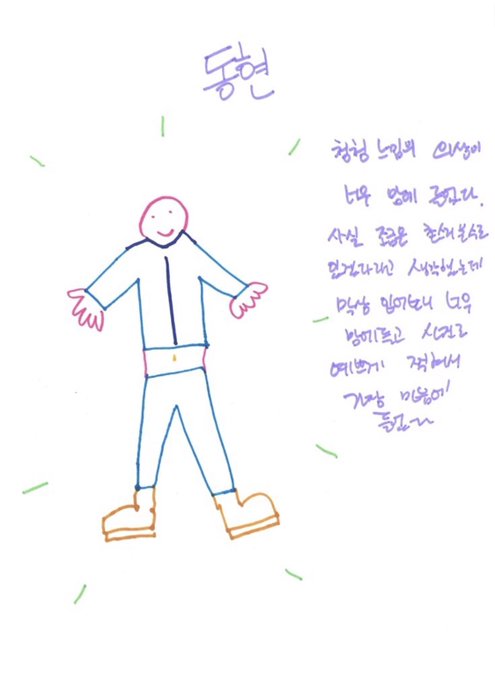 동현
청청 느낌의 의상이
너무 맘에 들었다.
사실 조금은 촌스러울수도
있겠다라고 생각했는데
막상 입어보니 너무
맘에들고 사진도
예쁘게 찍혀서
가장 마음에
들었다